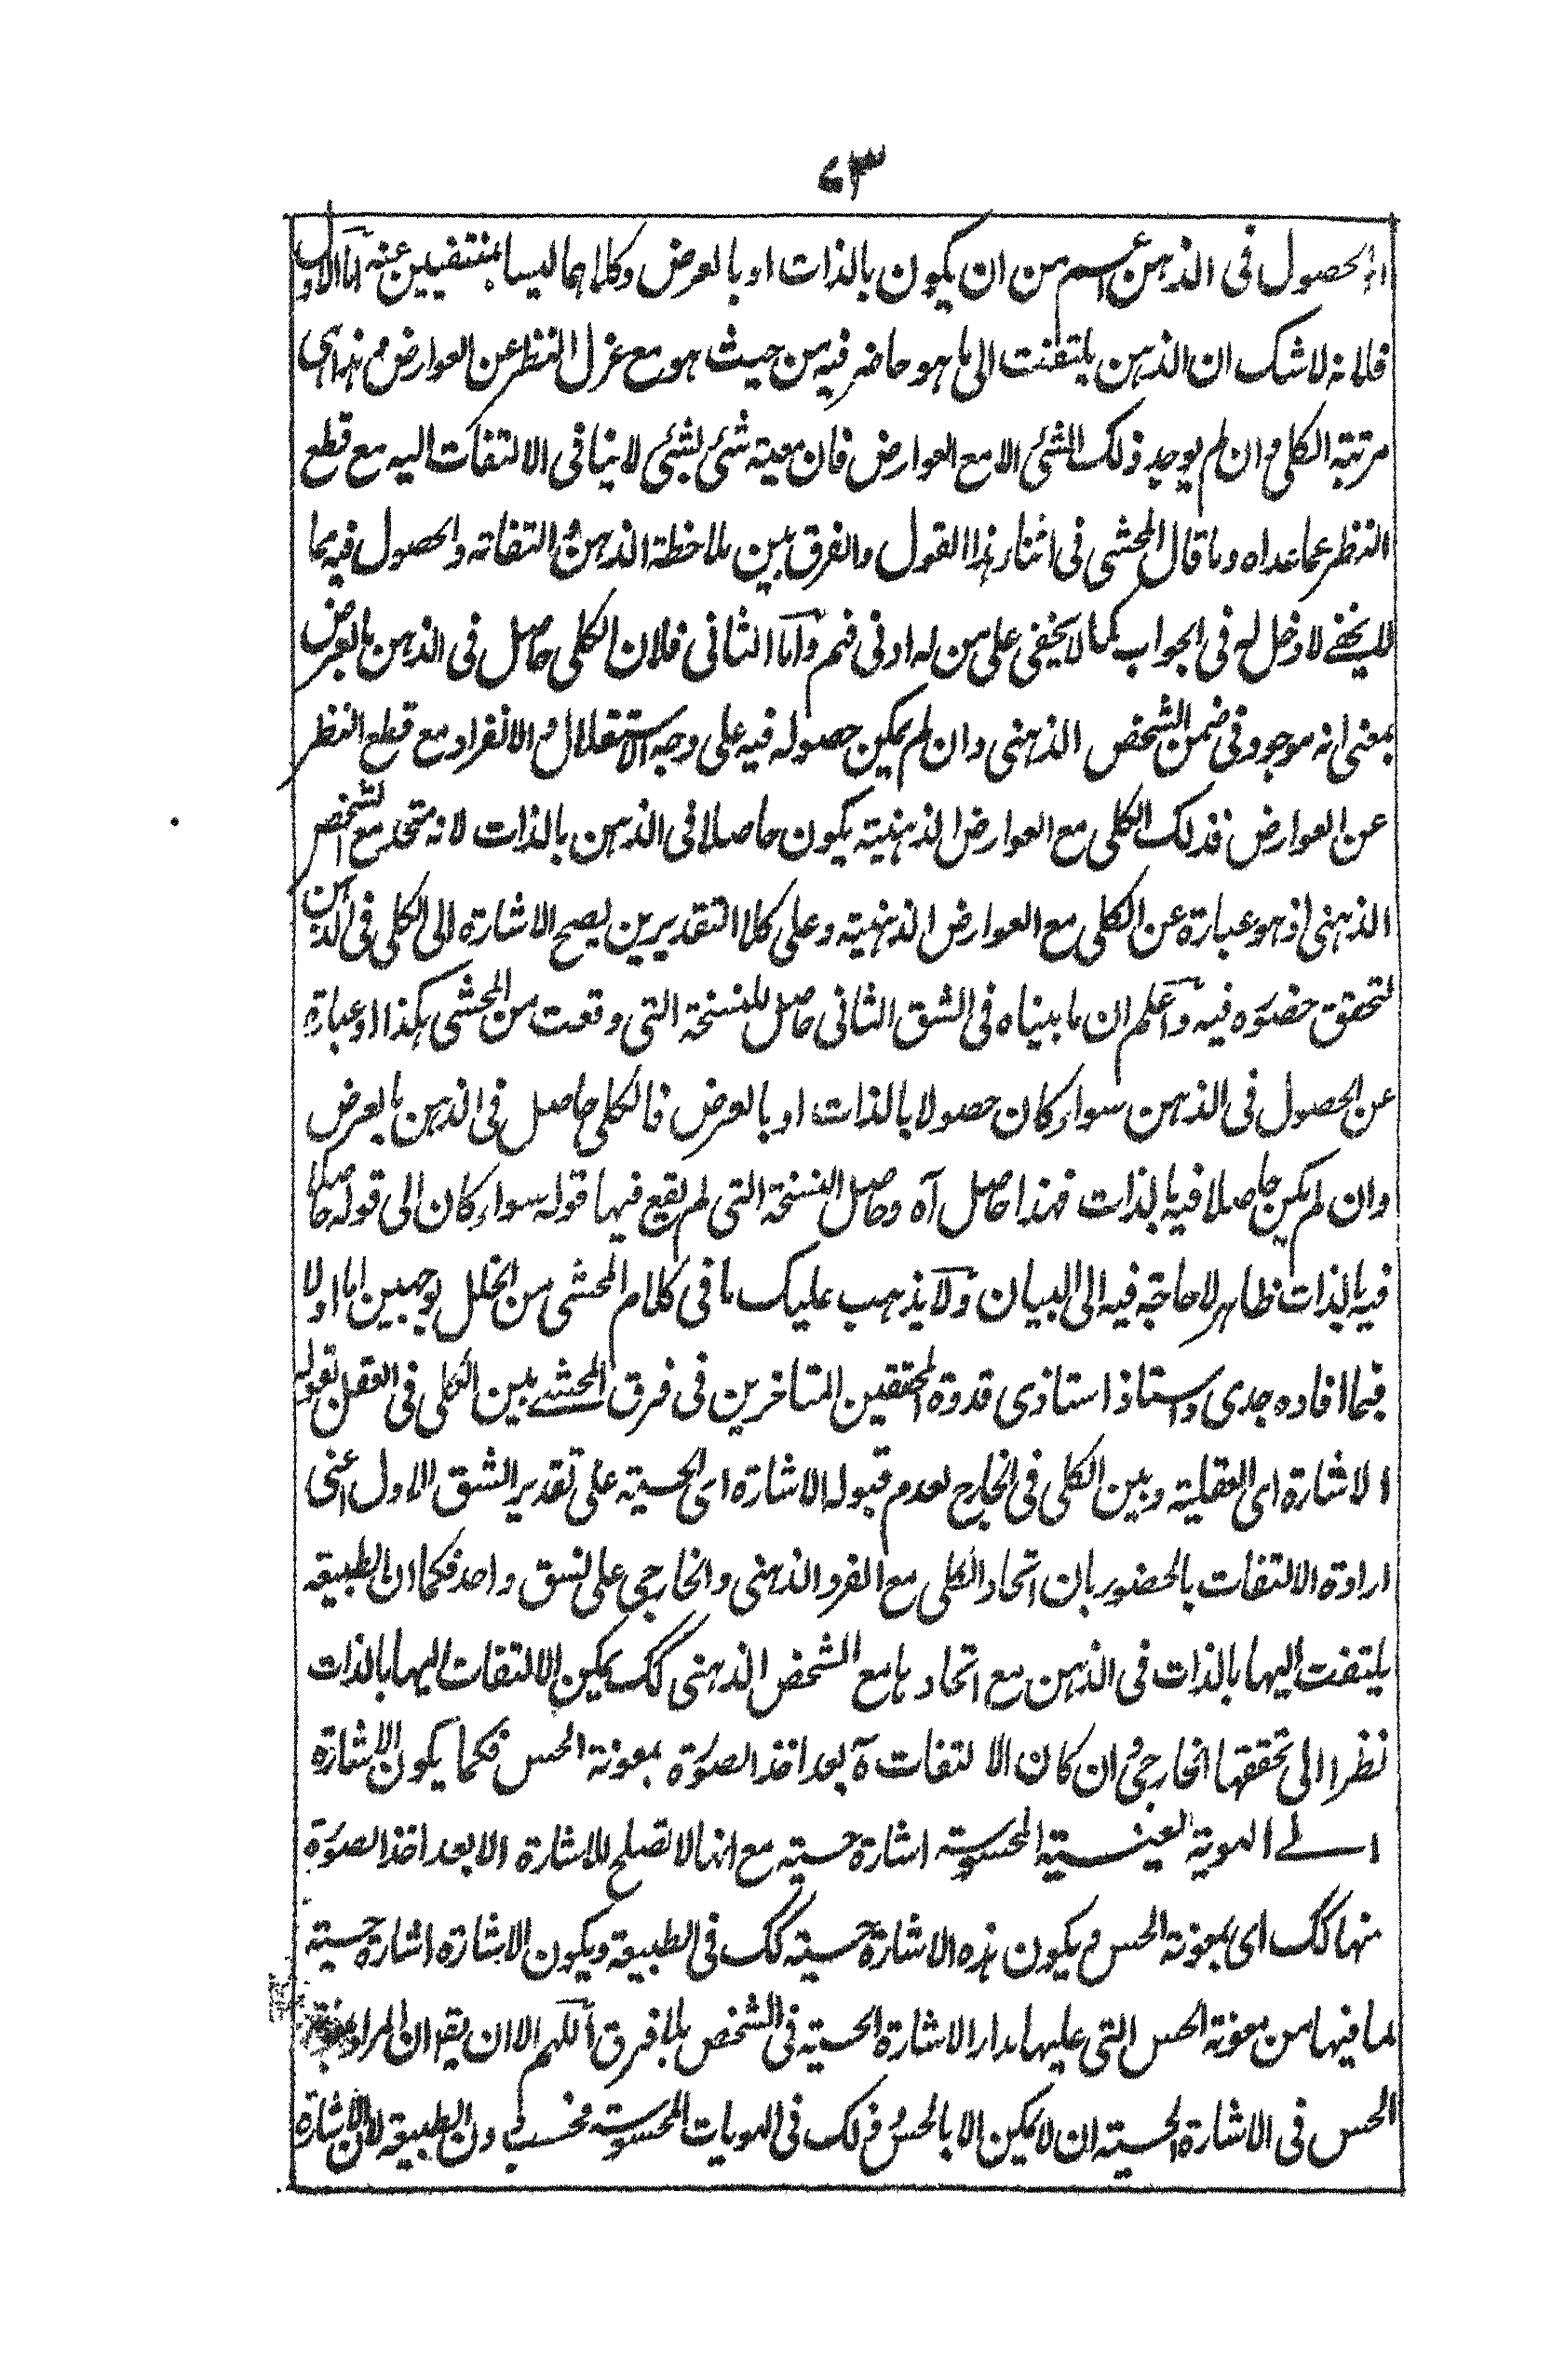 ٧٣
او الحصول فى الذهن اعم من ان يكون بالذات او بالعرض وكلاهما ليسا بمنتفيين عنه اما الاول
فلانه لاشك ان الذهن يلتفت الى ما هو حاضر فيه من حيث هو مع عزل النظر عن العوارض وهذا هى
مرتبة الكلى وان لم يوجد ذلك الشئ الا مع العوارض فان معية شئ بشئ لا ينافى الالتفات اليه مع قطع
النظر عما عداه وما قال المحشى فى اثناء هذا القول والفرق بين ملاحظة الذهن والتفاته والحصول فيه مما
لا يخفے لا دخل له فى الجواب كما لا يخفى على من له ادنى فهم واما الثانى فلان الكلى حاصل فى الذهن بالعرض
بمعنى انه موجود فى ضمن الشخص الذهنى وان لم يمكن حصوله فيه على وجه الاستقلال والانفراد مع قطع النظر
عن العوارض فذلك الكلى مع العوارض الذهنية يكون حاصلا فى الذهن بالذات لانه متحد مع الشخص
الذهنى اذ هو عبارة عن الكلى مع العوارض الذهنية وعلى كلا التقديرين يصح الاشارة الى الكلى فى الذهن
لتحقق حضوره فيه واعلم ان ما بيناه فى الشق الثانى حاصل للنسخة التى وقعت من المحشى هكذا او عبارة
عن الحصول فى الذهن سواء كان حصولا بالذات او بالعرض فالكلى حاصل فى الذهن بالعرض
وان لم يكن حاصلا فيه بالذات فهذا حاصل آه وحاصل النسخة التى لم يقع فيها قوله سواء كان الى قوله حاصلا
فيه بالذات ظاهر لا حاجة فيه الى البيان ولا يذهب عليك ما فى كلام المحشى من الخلل بوجهين اما اولا
فبما افاده جدى واستاذ استاذى قدوة المحققين المتاخرين فى فرق المحشے بين الكلى فى العقل بقوله
الاشارة اى العقلية وبين الكلى فى الخارج بعدم قبوله الاشارة اى الحسية على تقدير الشق الاول اعنى
ارادة الالتفات بالحضور بان اتحاد الكلى مع الفرد الذهنى والخارجى على نسق واحد فكما ان الطبيعة
يلتفت اليها بالذات فى الذهن مع اتحادها مع الشخص الذهنى كك يمكن الالتفات اليها بالذات
نظرا الى تحققها الخارجى وان كان الالتفات ة بعد اخذ الصورة بمعونة الحس فكما يكون الاشارة
الے الهوية العينية المحسوسة اشارة حسية مع انها لا تصلح للاشارة الا بعد اخذ الصورة
منها كك اى بمعونة الحس ويكون هذه الاشارة حسية كك فى الطبيعة ويكون الاشارة اشارة حسية
لما فيها من معونة الحس التى عليها مدار الاشارة الحسية فى الشخص بلا فرق اللهم الا ان يقو ان المراد بمعونة
الحس فى الاشارة الحسية ان لا يمكن الا بالحس وذلك فى الهويات المحسوسة فحسب دون الطبيعة لان الاشارة